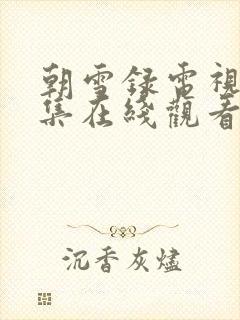 朝雪録電視
集在綫觀看
沉香灰燼